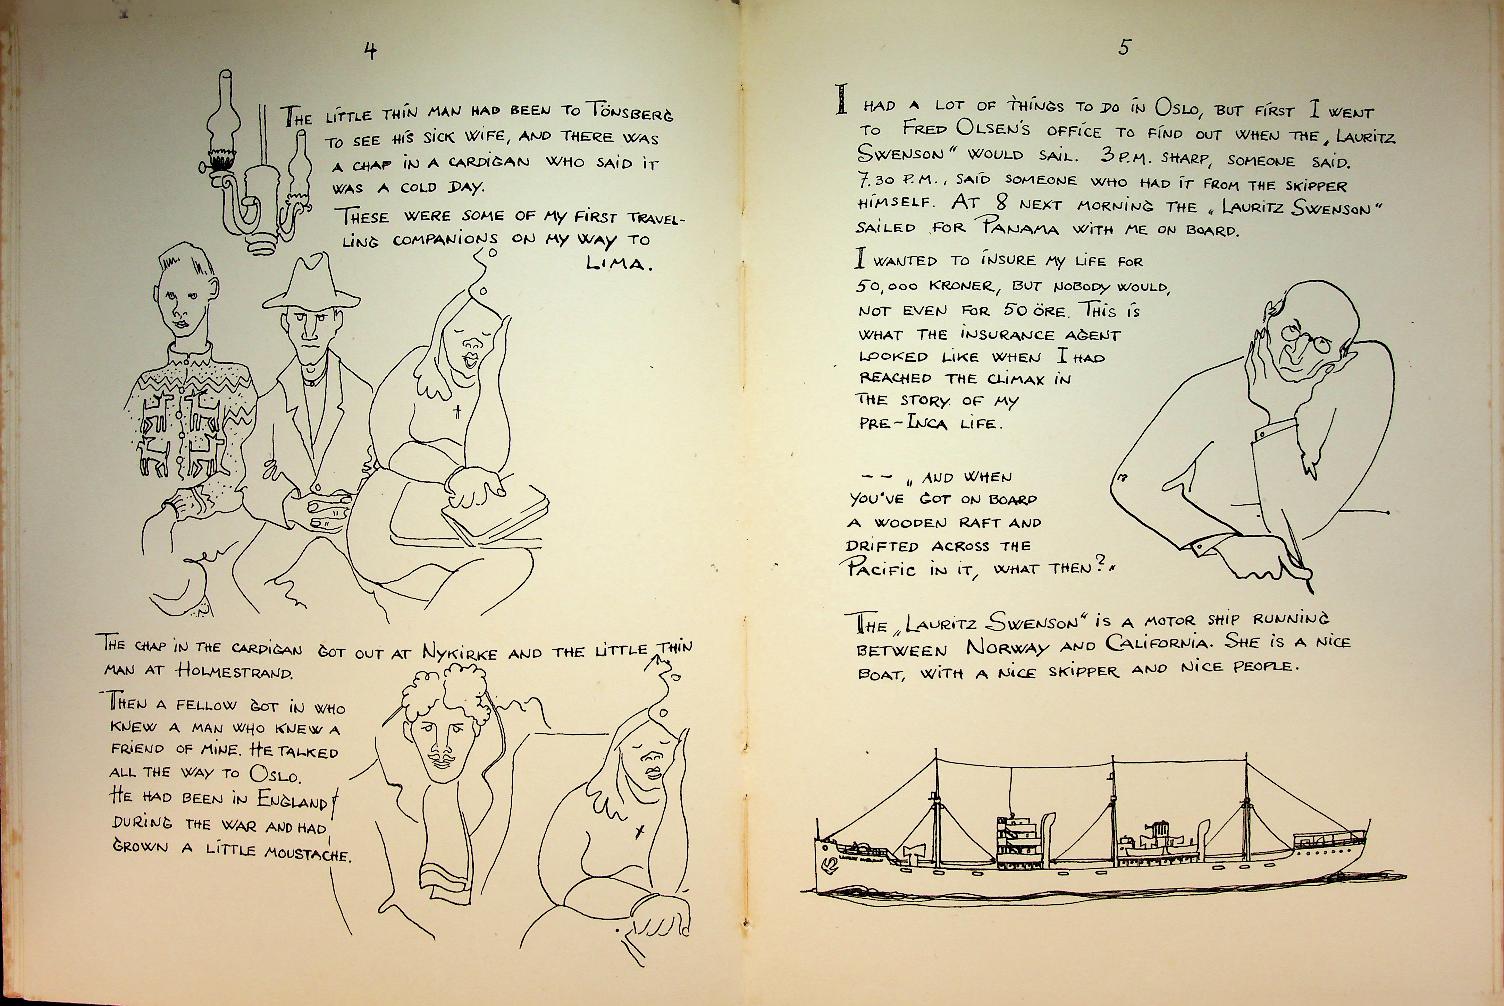 4
THE LITTLE THIN MAN HAD BEEN TO TÖNSBERG
TO SEE HIS SICK WIFE, AND THERE WAS
A CHAP IN A CARDIGAN WHO SAID IT
WAS A COLD DAY.
THESE WERE SOME OF MY FIRST TRAVEL-
LING COMPANIONS ON MY WAY TO
LIMA.
THE CHAP IN THE CARDIGAN GOT OUT AT NYKIRKE AND THE LITTLE THIN
MAN AT HOLMESTRAND.
THEN A FELLOW GOT IN WHO
KNEW A MAN WHO KNEW A
FRIEND OF MINE. HE TALKED
ALL THE WAY TO OSLO.
HE HAD BEEN IN ENGLAND
DURING THE WAR AND HAD
GROWN A LITTLE MOUSTACHE.
5
I HAD A LOT OF THINGS TO DO IN OSLO, BUT FIRST I WENT
TO FRED OLSEN'S OFFICE TO FIND OUT WHEN THE „LAURITZ
SWENSON" WOULD SAIL. 3 P.M. SHARP, SOMEONE SAID.
7.30 P.M., SAID SOMEONE WHO HAD IT FROM THE SKIPPER
HIMSELF. AT 8 NEXT MORNING THE „LAURITZ SWENSON"
SAILED FOR PANAMA WITH ME ON BOARD.
I WANTED TO INSURE MY LIFE FOR
50,000 KRONER, BUT NOBODY WOULD,
NOT EVEN FOR 50 ÖRE. THIS IS
WHAT THE INSURANCE AGENT
LOOKED LIKE WHEN I HAD
REACHED THE CLIMAX IN
THE STORY OF MY
PRE-INCA LIFE.
-- „AND WHEN
YOU'VE GOT ON BOARD
A WOODEN RAFT AND
DRIFTED ACROSS THE
PACIFIC IN IT, WHAT THEN?"
THE „LAURITZ SWENSON" IS A MOTOR SHIP RUNNING
BETWEEN NORWAY AND CALIFORNIA. SHE IS A NICE
BOAT, WITH A NICE SKIPPER AND NICE PEOPLE.